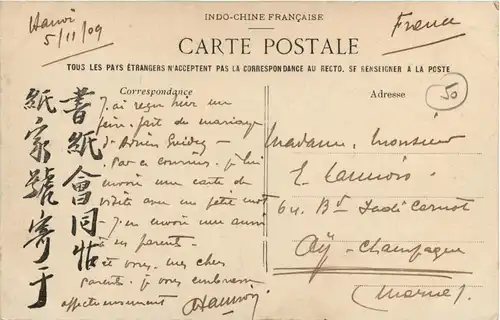 Hanoi
5/11/09
INDO-CHINE FRANÇAISE
CARTE POSTALE
France
TOUS LES PAYS ÉTRANGERS N'ACCEPTENT PAS LA CORRESPONDANCE AU RECTO. SE RENSEIGNER A LA POSTE
Correspondance
J'ai reçu hier un
faire-part de mariage
d'Adrien Guidez –
Par ce courrier, je lui
envoie une carte de
visite avec un petit mot
– J'en envoie une aussi
à ses parents.
et vous, mes chers
parents. je vous embrasse
affectueusement
書紙會同帖
紙家號寄于
Adresse
50
Madame, Monsieur
E. Lannois
64, Bd Sadi Carnot
Aÿ – Champagne
(Marne).